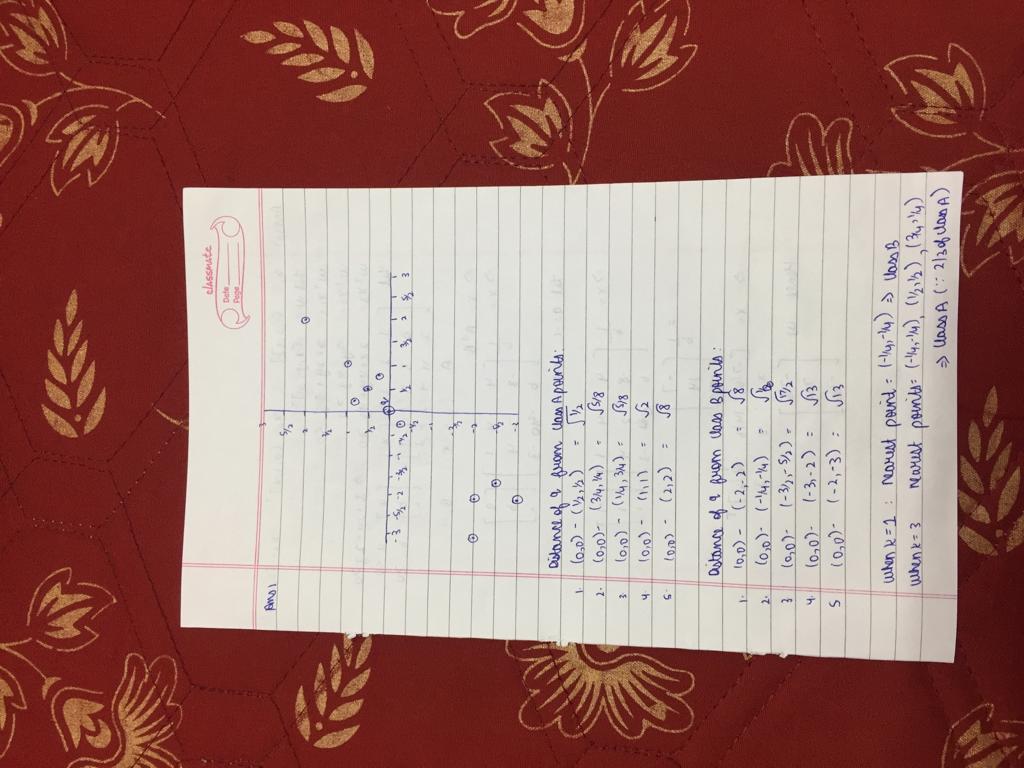 classmate
Date
Page
Ans1
3
5/2
2
3/2
1
1/2
q
-3 -5/2 -2 -3/2 -1 -1/2 1/2 1 3/2 2 5/2 3
-1/2
-1
-3/2
-2
-5/2
Distance of q from class A points:
1. (0,0) - (1/2, 1/2) = √1/2
2. (0,0) - (3/4, 1/4) = √5/8
3. (0,0) - (1/4, 3/4) = √5/8
4. (0,0) - (1,1) = √2
5. (0,0) - (2,2) = √8
Distance of q from class B points:
1. (0,0) - (-2,-2) = √8
2. (0,0) - (-1/4,-1/4) = √1/8
3 (0,0) - (-3/2,-5/2) = √17/2
4. (0,0) - (-3,-2) = √13
5 (0,0) - (-2,-3) = √13
when k=1 : nearest point = (-1/4,-1/4) ⇒ class B
when k=3 nearest points = (-1/4,-1/4), (1/2,1/2), (3/4,1/4)
⇒ class A (∵ 2/3 of class A)